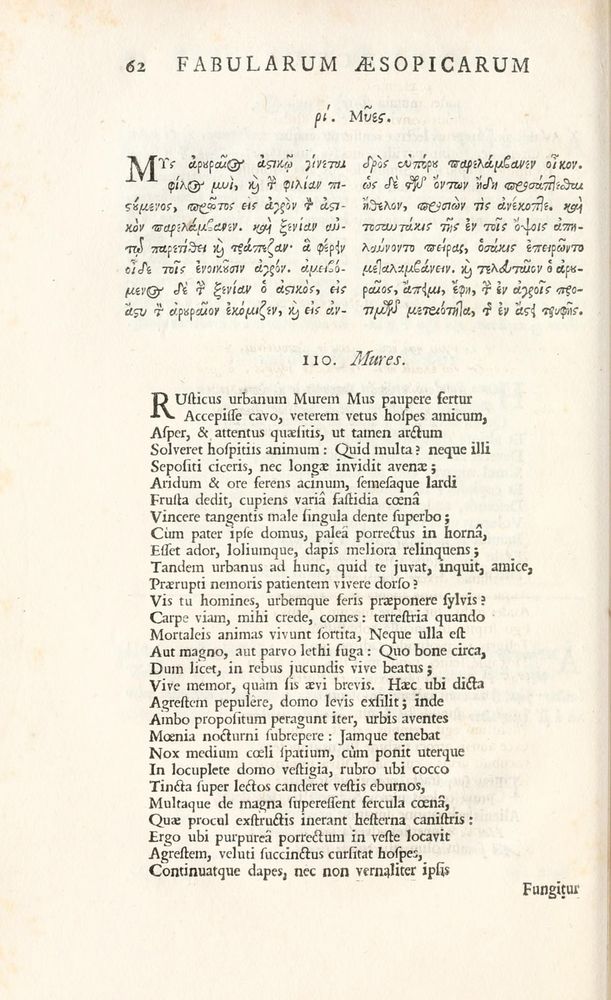 62 FABULARUM ÆSOPICARUM
ρί. Μῦες.
ΜΥς ἀρουραῖος ἀστικῷ γίνεται
φίλος μυί, καὶ τὴν φιλίαν πι-
στούμενος, πρῶτος εἰς ἀγρὸν τὸν ἀστι-
κὸν παρελάμβανεν. καὶ ξενίαν αὐ-
τῷ παρετίθει καὶ τράπεζαν· ἃ φέρειν
οἶδε τοῖς ἐνοικοῦσιν ἀγρόν. ἀμειβό-
μενος δὲ τὴν ξενίαν ὁ ἀστικὸς, εἰς
ἄστυ τὸν ἀρουραῖον ἐκόμιζεν, καὶ εἰς ἀν-
δρὸς εὐπόρου παρελάμβανεν οἶκον.
ὡς δὲ τῶν ὄντων ἤδη προσάπτεσθαι
ἤθελον, προσιών τὶς ἀνέκοπτε. καὶ
τοσαυτάκις τῆς ἐν τοῖς ὄψοις ἀπη-
λαύνοντο πείρας, ὁσάκις ἐπειρῶντο
μεταλαμβάνειν. καὶ τελευταῖον ὁ ἀρου-
ραῖος, ἄπειμι, ἔφη, τὴν ἐν ἀγροῖς προ-
τιμῶν μετριότητα, τῆς ἐν ἄστει τρυφῆς.
110. Mures.
RUsticus urbanum Murem Mus paupere fertur
Accepisse cavo, veterem vetus hospes amicum,
Asper, & attentus quæsitis, ut tamen arctum
Solveret hospitiis animum: Quid multa? neque illi
Sepositi ciceris, nec longæ invidit avenæ;
Aridum & ore ferens acinum, semesaque lardi
Frusta dedit, cupiens variâ fastidia cœnâ
Vincere tangentis male singula dente superbo;
Cùm pater ipse domus, paleâ porrectus in hornâ,
Esset ador, loliumque, dapis meliora relinquens;
Tandem urbanus ad hunc, quid te juvat, inquit, amice,
Prærupti nemoris patientem vivere dorso?
Vis tu homines, urbemque feris præponere sylvis?
Carpe viam, mihi crede, comes: terrestria quando
Mortaleis animas vivunt sortita, Neque ulla est
Aut magno, aut parvo lethi fuga: Quo bone circa,
Dum licet, in rebus jucundis vive beatus;
Vive memor, quàm sis ævi brevis. Hæc ubi dicta
Agrestem pepulêre, domo levis exsilit; inde
Ambo propositum peragunt iter, urbis aventes
Mœnia nocturni subrepere: Jamque tenebat
Nox medium cœli spatium, cùm ponit uterque
In locuplete domo vestigia, rubro ubi cocco
Tincta super lectos canderet vestis eburnos,
Multaque de magna superessent fercula cœnâ,
Quæ procul exstructis inerant hesterna canistris:
Ergo ubi purpureâ porrectum in veste locavit
Agrestem, veluti succinctus cursitat hospes,
Continuatque dapes, nec non vernaliter ipsis
Fungitur